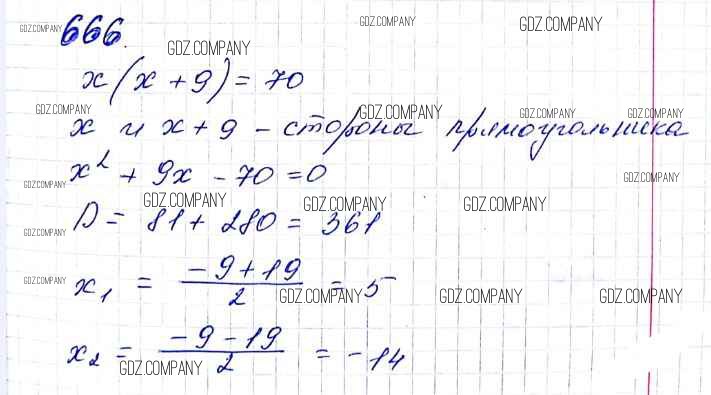 666.
GDZ.COMPANY GDZ.COMPANY GDZ.COMPANY GDZ.COMPANY
x(x+9)=70
GDZ.COMPANY GDZ.COMPANY GDZ.COMPANY GDZ.COMPANY
x и x+9 - стороны прямоугольника
x² + 9x - 70 = 0
GDZ.COMPANY GDZ.COMPANY
GDZ.COMPANY GDZ.COMPANY GDZ.COMPANY
D = 81 + 280 = 361
GDZ.COMPANY
x₁ = (-9+19)/2 = 5
GDZ.COMPANY GDZ.COMPANY GDZ.COMPANY GDZ.COMPANY
x₂ = (-9-19)/2 = -14
GDZ.COMPANY